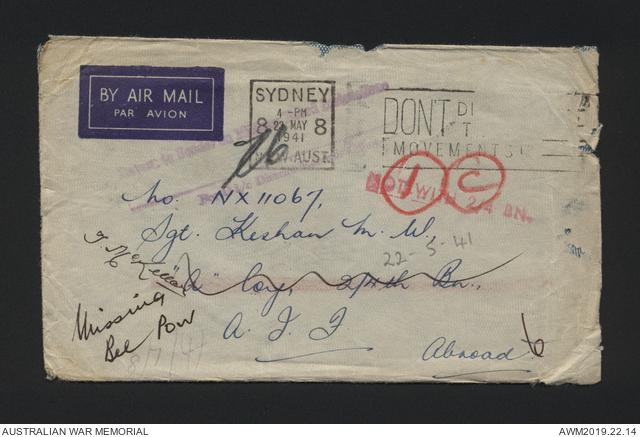 BY AIR MAIL
PAR AVION
SYDNEY
4 - PM
8 22 MAY 8
1941
N.S.W. AUST.
DON'T DI
T
MOVEMENTS
1 C
NOT WITH 2/4 BN.
No. NX 11067,
Sgt. Keshan M. W.,
22-5-41
"A" Coy, 2/4th Bn.,
A. I. F
Abroad
Missing
Bel Pow
8/7/41
AUSTRALIAN WAR MEMORIAL
AWM2019.22.14